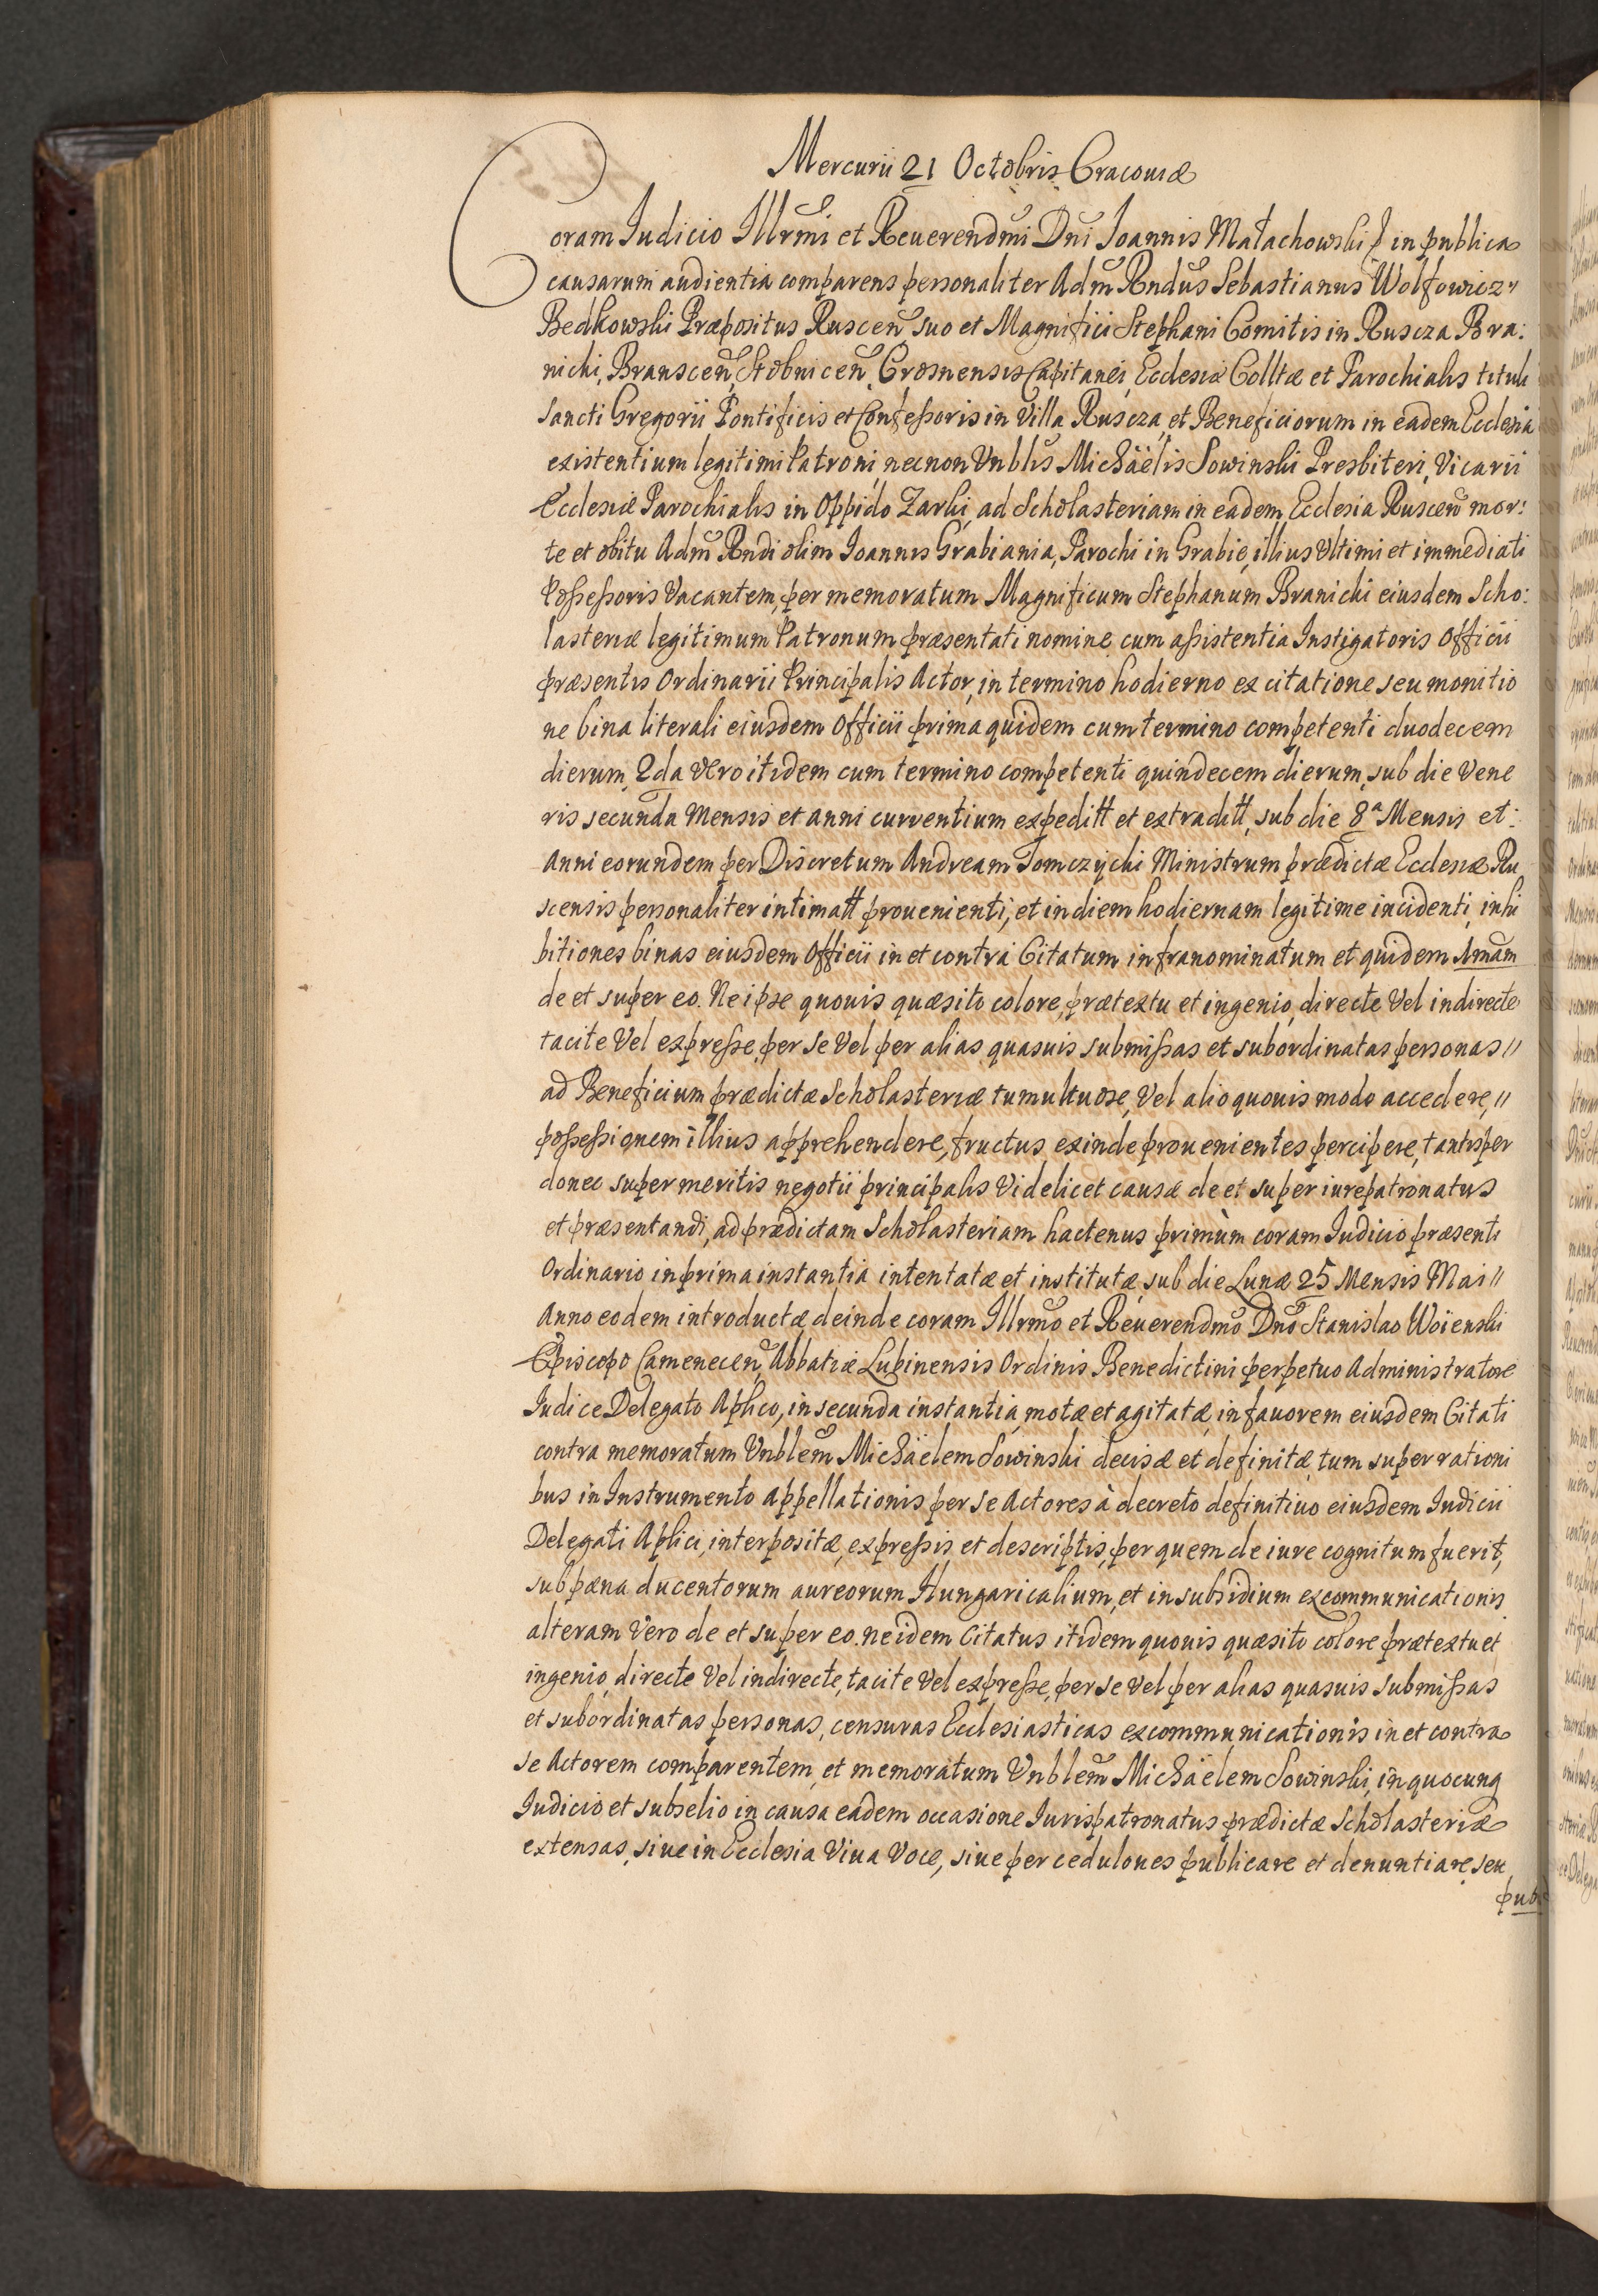 Mercurii 21 Octobris Cracouiæ
Coram Iudicio Illrmi et Reuerendmi Dni Ioannis Małachowski in publica
causarum audientia comparens personaliter Adm Rndus Sebastianus Wolfowicz
Bedkowski Præpositus Ruscen suo et Magnifici Stephani Comitis in Ruscza Bra:
nichi, Branscen, Stobnicen, Crosnensis Capitanei, Ecclesiæ Colltæ et Parochialis tituli
Sancti Gregorii Pontificis et Confessoris in Villa Ruscza, et Beneficiorum in eadem Ecclesia
existentium legitimi Patroni, necnon Vnblis Michäelis Sowinski Presbiteri, Vicarii
Ecclesiæ Parochialis in Oppido Zarki, ad Scholasteriam in eadem Ecclesia Ruscen mor:
te et obitu Adm Rndi olim Ioannis Grabiania, Parochi in Grabie, illius Vltimi et immediati
Possessoris Vacantem, per memoratum Magnificum Stephanum Branichi eiusdem Scho:
lasteriæ legitimum Patronum præsentati nomine, cum assistentia Instigatoris Officii
præsentis Ordinarii Principalis Actor, in termino hodierno ex citatione seu monitio
ne bina literali eiusdem Officii prima quidem cum termino competenti duodecem
dierum, 2da Vero itidem cum termino competenti quindecem dierum, sub die Vene
ris secunda Mensis et anni currentium expeditt et extraditt, sub die 8a Mensis et:
Anni eorundem per Discretum Andream Tomczychi Ministrum prædictæ Ecclesiæ Ru
scensis personaliter intimatt prouenienti, et in diem hodiernam legitime incidenti, inhi
bitiones binas eiusdem Officii in et contra Citatum infranominatum et quidem 1mam
de et super eo. Ne ipse quouis quæsito colore, prætextu et ingenio, directe Vel indirecte
tacite Vel expresse, per se Vel per alias quasuis submissas et subordinatas personas //
ad Beneficium prædictæ Scholasteriæ tumultuose, Vel alio quouis modo accedere, //
possessionem illius apprehendere, fructus exinde prouenientes percipere, tantisper
donec super meritis negotii principalis Videlicet causæ de et super iurepatronatus
et præsentandi, ad prædictam Scholasteriam hactenus primùm coram Iudicio præsenti
Ordinario in prima instantia intentatæ et institutæ, sub die Lunæ 25 Mensis Maii //
Anno eodem introductæ deinde coram Illrmo et Reuerendmo Dno Stanislao Woienski
Episcopo Camenecen, Abbatiæ Lubinensis Ordinis Benedictini perpetuo Administratore
Iudice Delegato Aplico, in secunda instantia motæ et agitatæ, in fauorem eiusdem Citati
contra memoratum Vnblem Michäelem Sowinski decisæ et definitæ, tum super rationi
bus in Instrumento appellationis per se Actores à decreto definitiuo eiusdem Iudicii
Delegati Aplici, interpositæ, expressis et descriptis, per quem de iure cognitum fuerit,
sub pæna ducentorum aureorum Hungaricalium, et in subsidium excommunicationis
alteram Vero de et super eo. ne idem Citatus itidem quouis quæsito colore prætextu et
ingenio, directe Vel indirecte, tacite Vel expresse, per se Vel per alias quasuis submissas
et subordinatas personas, censuras Ecclesiasticas excommunicationis in et contra
se Actorem comparentem, et memoratum Vnblem Michäelem Sowinski, in quocunq
Iudicio et subselio in causa eadem occasione Iurispatronatus prædictæ Scholasteriæ
extensas, siue in Ecclesia Viua Voce, siue per cedulones publicare et denuntiare, seu
pub